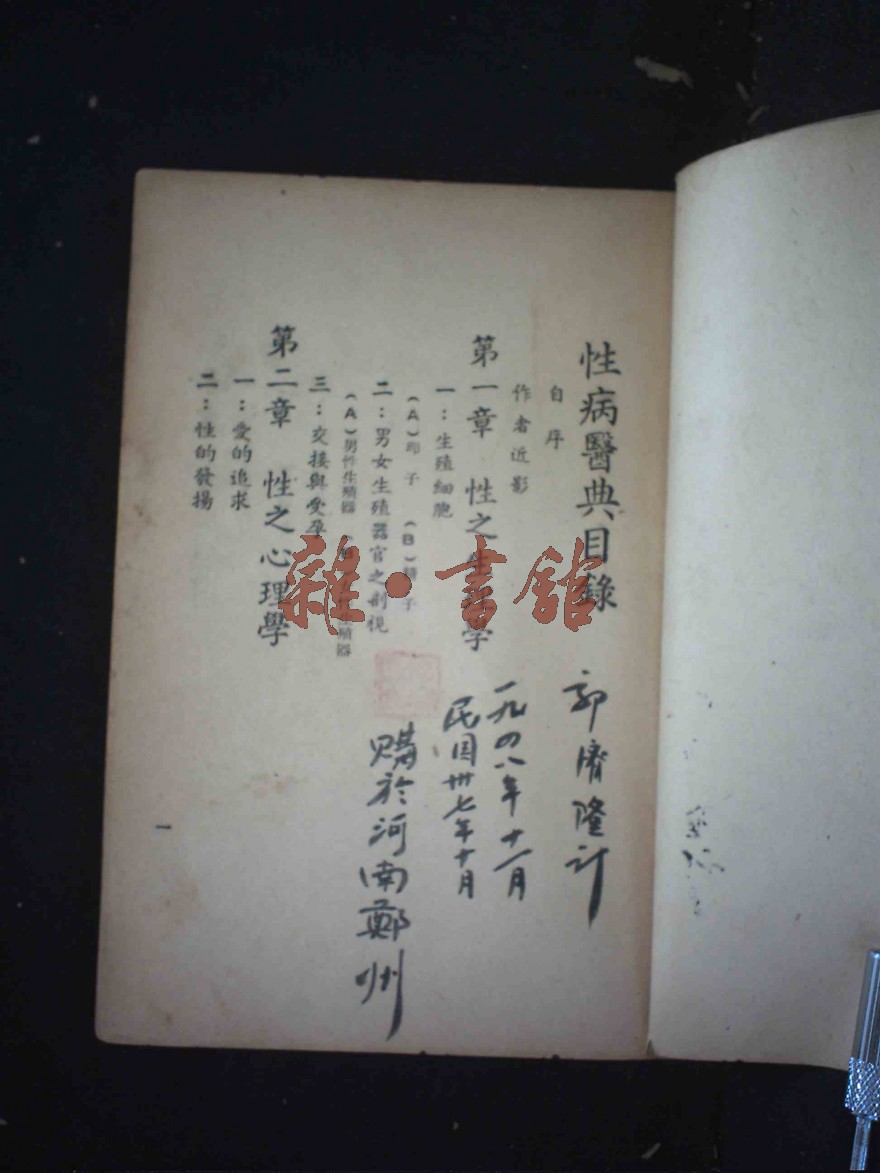 性病醫典目錄
自序
作者近影
第一章 性之生理學
一：生殖細胞
(A)卵子 (B)精子
二：男女生殖器官之剖視
(A)男性生殖器 生殖器
三：交接與受孕
第二章 性之心理學
一：愛的追求
二：性的發揚
一
郭濟隆
一九四八年十一月
民国卅七年十月
購於河南鄭州
雜·書館